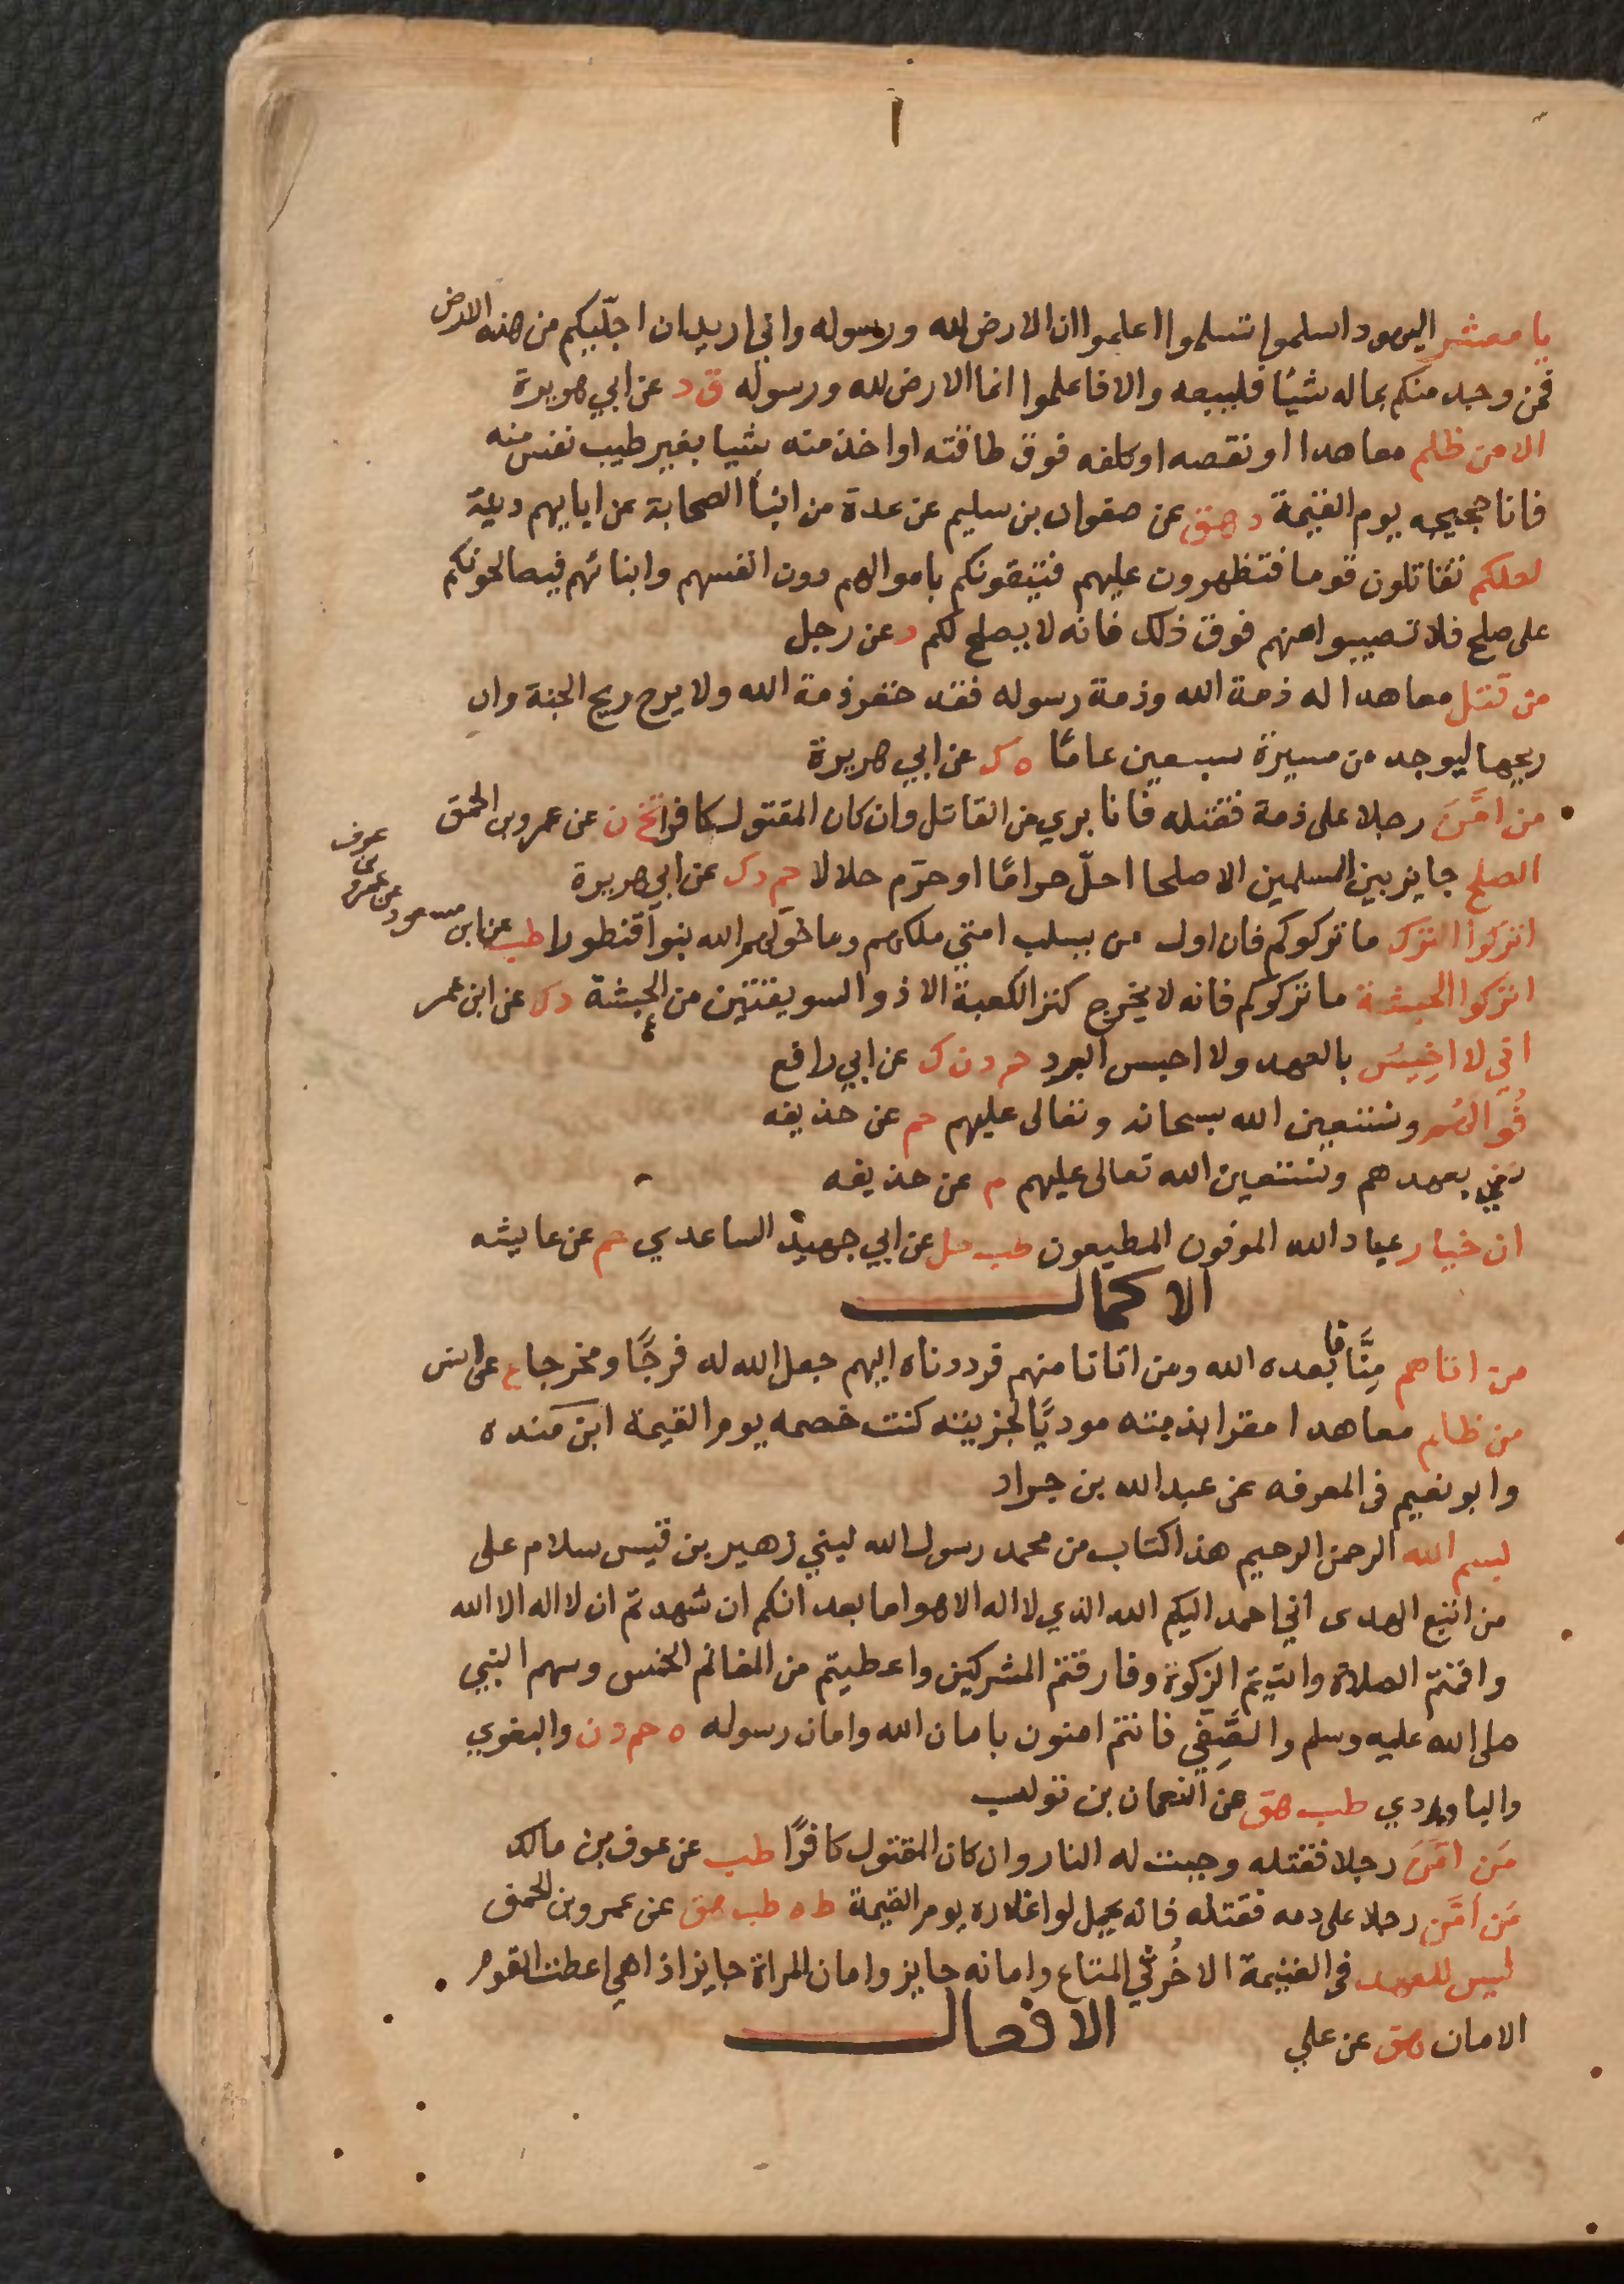 ا
يا معشر اليهود اسلموا تسلموا اعلموا ان الارض لله ورسوله واني اريد ان اجليكم من هذه الارض
فمن وجد منكم بماله شيئا فليبعه والا فاعلموا انما الارض لله ورسوله ق د عن ابي هريرة
الا من ظلم معاهدا او نقصه او كلفه فوق طاقته او اخذ منه شيا بغير طيب نفس منه
فانا حجيجه يوم القيمة د هق عن صفوان بن سليم عن عدة من ابنأ الصحابة عن ابايهم دية
لعلكم تقاتلون قوما فتظهرون عليهم فيتقونكم باموالهم دون انفسهم وابنائهم فيصالحونكم
على صلح فلا تصيبوا منهم فوق ذلك فانه لا يصلح لكم د عن رجل
من قتل معاهدا له ذمة الله وذمة رسوله فقد خفر ذمة الله ولا يرح ريح الجنة وان
ريحها ليوجد من مسيرة سبعين عامًا ه ك عن ابي هريرة
من امَّنَ رجلا على ذمة فقتله فانا بري من القاتل وان كان المقتول كافرا تخ ن عن عمرو بن الحمق
الصلح جايز بين المسلمين الا صلحا احلّ حرامًا او حرّم حلالا حم د ك عن ابي هريرة
عن عمرو بن عوف
اتركوا الترك ما تركوكم فان اول من يسلب امتي ملكهم وما خوّلهم الله بنوا قنطورا طب عن ابن مسعود
اتركوا الحبشة ما تركوكم فانه لا يخرج كنز الكعبة الا ذو السويقتين من الحبشة د ك عن ابن عمر
اني لا اخِيسُ بالعهد ولا احبس البرد حم د ن ك عن ابي رافع
فُوا لهُم ونستعين الله سبحانه وتعالى عليهم حم عن حذيفه
نفي بعهدهم ونستعين الله تعالى عليهم م عن حذيفه
ان خيار عباد الله الموفون المطيعون طب حل عن ابي حميد الساعدي حم عن عايشه
الاكمال
من اتاهم مِنَّا فابعده الله ومن اتانا منهم فرددناه اليهم جعل الله له فرجًا ومخرجا ع عن انس
من ظلم معاهدا مقرا بذمته موديًا لجزيته كنت خصمه يوم القيمة ابن منده
وابو نعيم فى المعرفه عن عبد الله بن جراد
بسم الله الرحمن الرحيم هذا كتاب من محمد رسول الله لبني زهير بن قيس سلام على
من اتبع الهدى اني احمد اليكم الله الذي لا اله الا هو اما بعد انكم ان شهدتم ان لا اله الا الله
واقمتم الصلاة واتيتم الزكوة وفارقتم المشركين واعطيتم من المغانم الخمس وسهم النبي
صلى الله عليه وسلم والصَّفِي فانتم امنون بامان الله وامان رسوله ه حم د ن والبغوي
والباوردي طب هق عن النعمان بن تولب
مَن امَّنَ رجلا فقتله وجبت له النار وان كان المقتول كافرًا طب عن عوف بن مالك
مَن اَمَّن رجلا على دمه فقتله فانه يحمل لوا غدره يوم القيمة ط ه طب هق عن عمرو بن الحمق
ليس للعبد فى الغنيمة الا خُرثي المتاع وامانه جايز وامان المراة جايز اذا هي اعطت القوم
الامان هق عن علي
الافعال